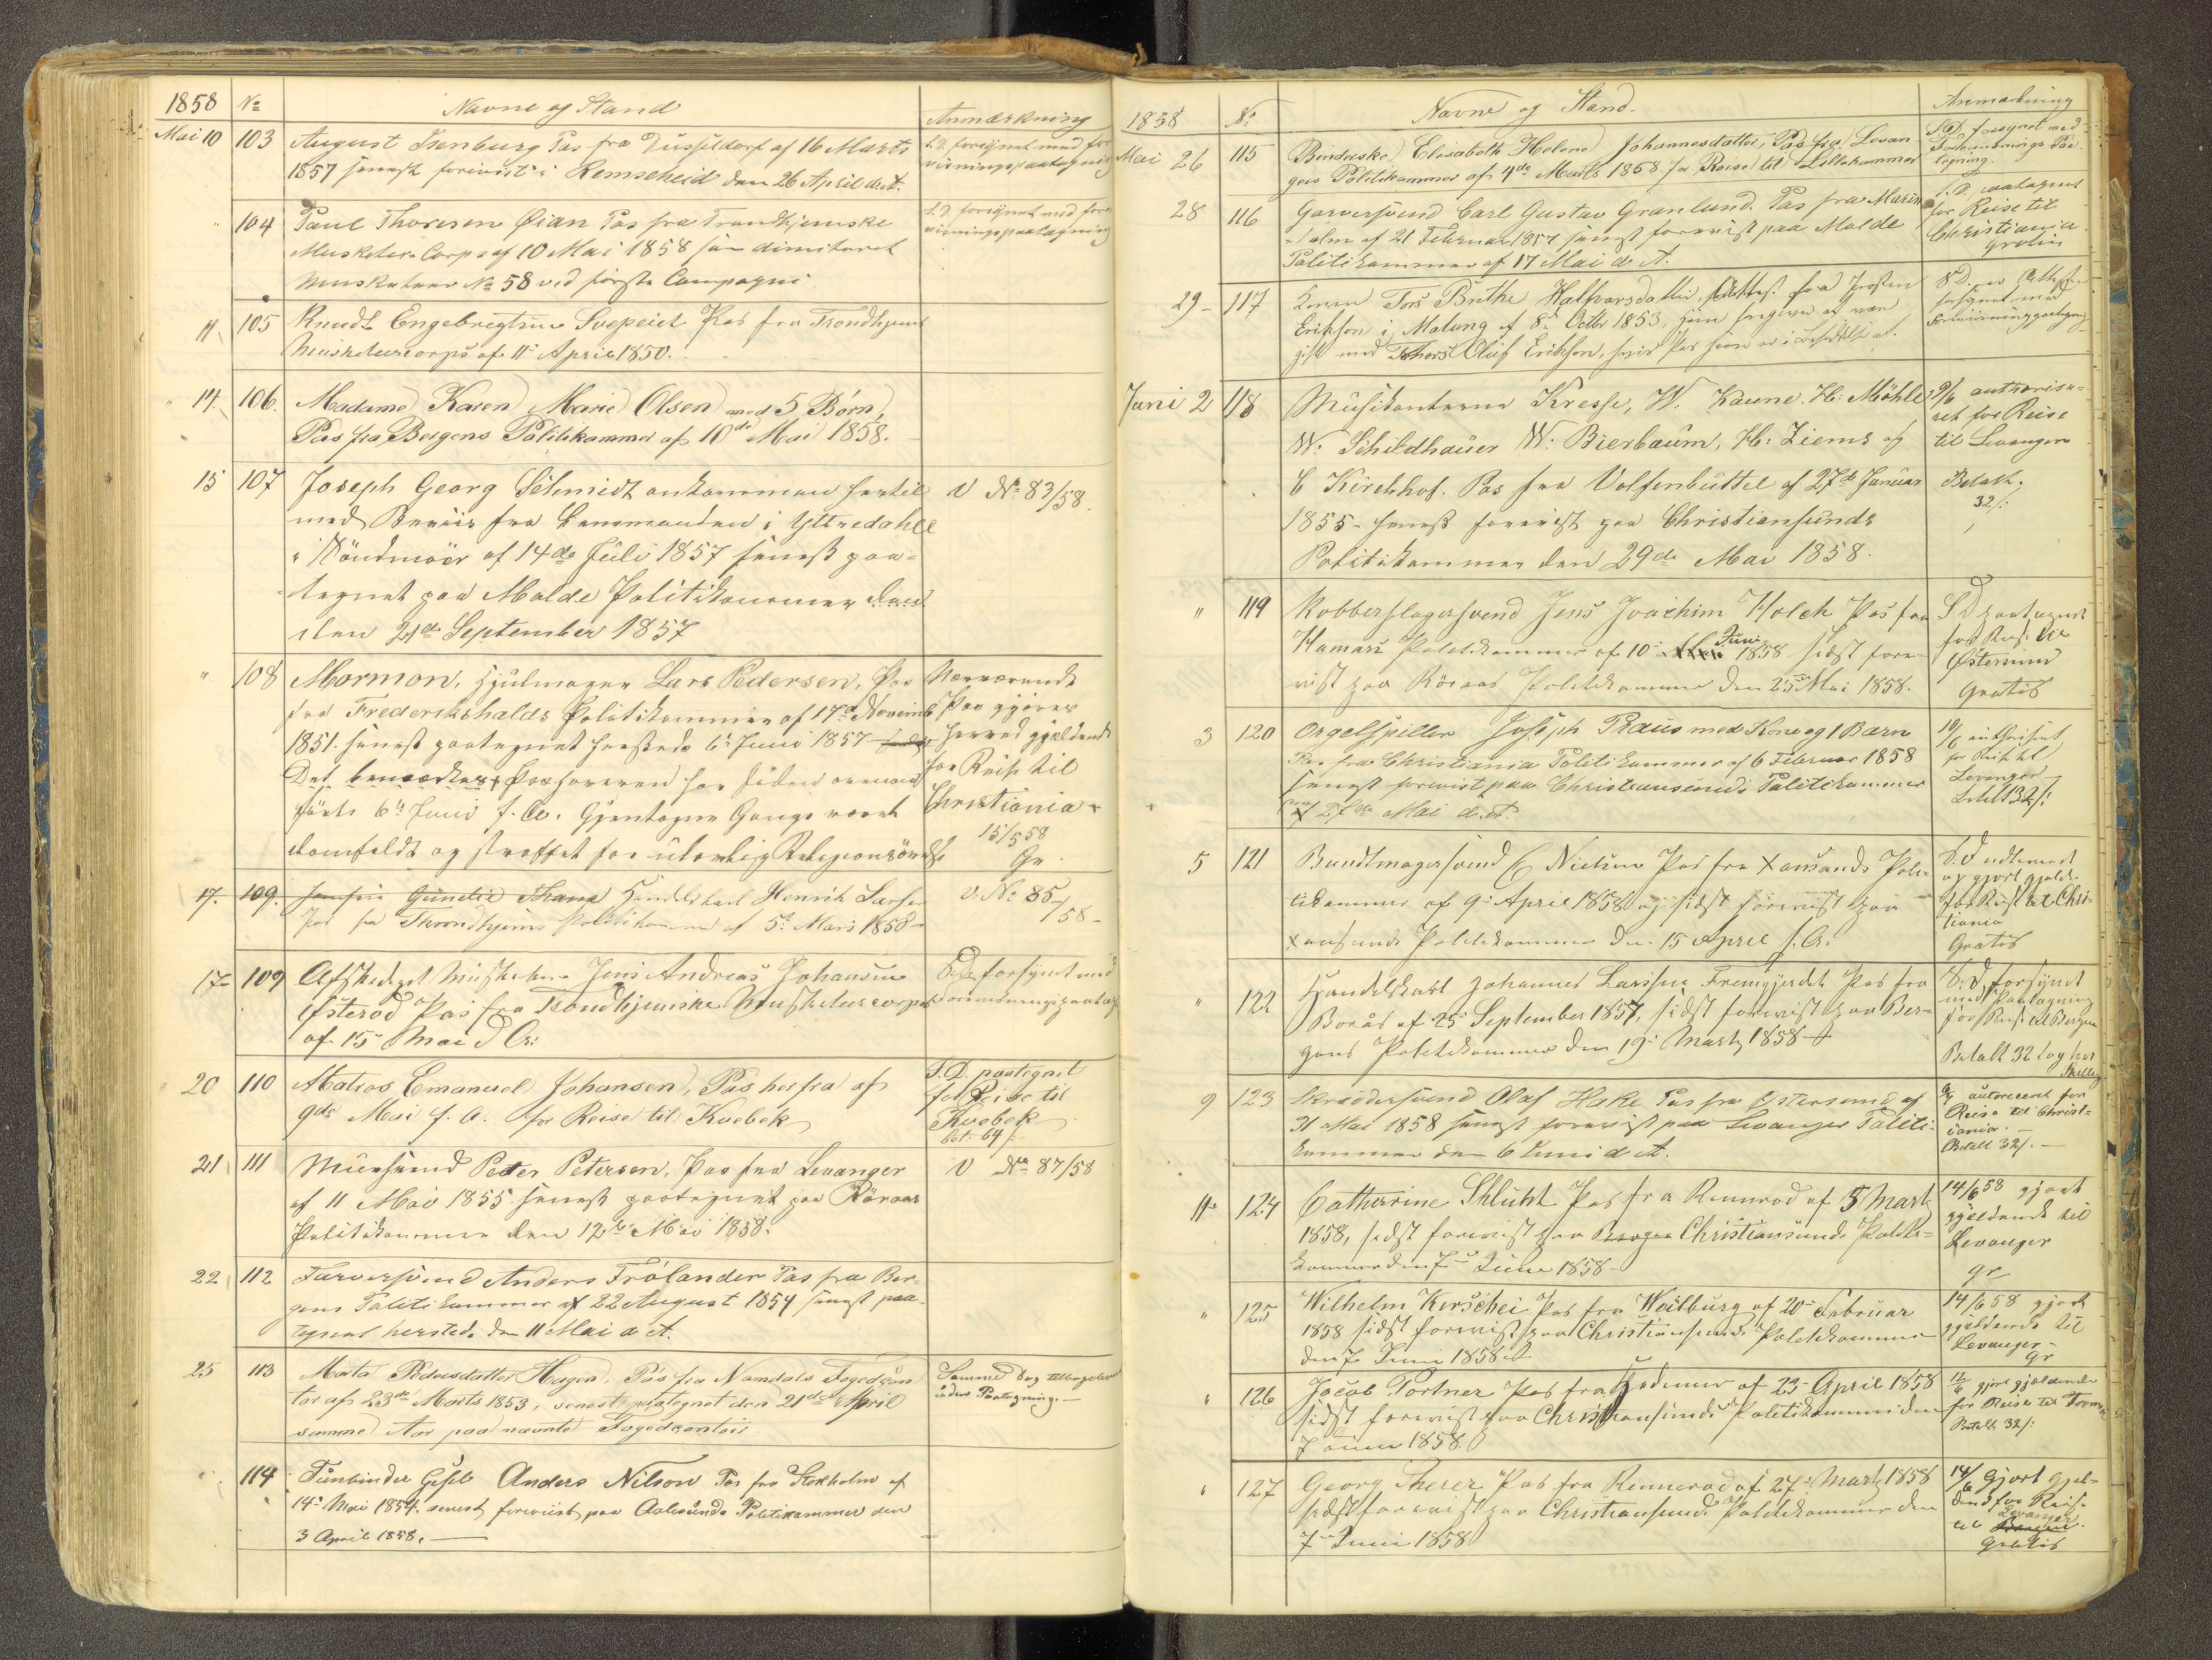 1858 No Navne og Stand Anmærkning
Mai 10 103 August Isenburg Pas fra Düsseldorf af 16 Marts
1857 senest foreviist i Remscheid den 26 April d. A.
S. D. forsynet med fore
visningspaategning
104 Paul Thoresen Øian Pas fra Trondhjemske
Musketer-Corps af 10 Mai 1858 som dimiteret
Musketeer No 58 ved første Compagni
S. D. forsynet med fore
visningspaategning
11 105 Knudt Engebregtsen Svepeiet Pas fra Trondhjems
Musketeercorps af 11 April 1850.
14. 106. Madame Karen Marie Olsen med 5 Børn,
Pas fra Bergens Politikammer af 10de Mai 1858.
15 107 Joseph Georg Schmidt ankommen hertil
med Beviis fra Lensmanden i Yttredahle
i Söndmöer af 14de Juli 1857 senest paa-
tegnet paa Molde Politikammer
den 21de September 1857
v No 83/58.
" 108 Mormon, Hjulmager Lars Pedersen, Pas
fra Frederikshalds Politikammer af 17de Novemb
1851. senest paategnet hersteds 6te Juni 1857
Det bemærkes, Passhaveren har siden
6te Juni f. A. Gjentagne Gange været
domfeldt og straffet for ulovlig Religionsøvelse
Nærværende
Pas gjøres
herved gjældende
for Reise til
Christiania
15/5 58
Gr.
17. 109. Handelskarl Henrik
Pas fra Throndhjems Politikammer af 5te Mars 1858
v. No 85/58
17 109 Afskediget Musketeer Jens Andreas Johansen
Østerød Pas fra Trondhjemske Musketeercorps
af 15 Mai d. A.
S. D. forsynet med
Forevisningspaateg
20 110 Matros Emanuel Johansen, Pas herfra af
9de Mai f. A. for Reise til Kvebek
S. D. paategnet
for Reise til
Kvebek
bet. 64 s.
21 111 Muursvend Peter Petersen, Pas fra Levanger
af 11 Mai 1855 senest paategnet paa Röraas
Politikammer den 12te Mai 1858.
v No 87/58
22 112 Farversvend Anders Frölander Pas fra Ber-
gens Politikammer af 22 August 1854 senest paa-
tegnet hersteds den 11 Mai d. A.
25 113 Marta Pedersdatter Hagen, Pas fra Namdals Fogedcon
tor af 23de Marts 1853, senest paategnet den 21de April
samme Aar paa nævnte Fogedcontoir.
Samme Dag tilbageleveret
uden Paategning.
114 Anders Nilson Pas fra Stokholm af
14de Mai 1854. senest foreviist paa Aalesunds Politikammer den
3 April 1858.
1858 No Navne og Stand. Anmærkning
Mai 26 115 Elisabeth Helene Johannesdatter, Pas fra Levan
gers Politikammer af 4de Marts 1858 for Reise til Lillehammer
S. D. forsynet med
Forevisnings Paa-
tegning.
28 116 Garversvend Carl Gustav Granlund. Pas fra Marie
holm af 21 Februar 1857 senest foreviist paa Molde
Politikammer af 17 Mai d. A.
S. D. paategnet
for Reise til
Christiania
Gratis
29 117 Tors Brithe Halfvarsdatter, fra
Erikson i Malung af 8de Octbr 1853, som
gift med Thors Oluf Erikson, hvis Pas hun er i Besiddelse af.
Juni 2 118 Musikanterne Kresse, W. Kaune. H: Möhle
W: Schildhauer W: Bierbaum, H: Ziems og
C Kirchhof. Pas fra Volfenbüttel af 27de Januar
1855 senest foreviist paa Christiansunds
Politikammer den 29de Mai 1858.
9/6 authorise-
ret for Reise
til Levanger
Betalt.
32 s.
" 119 Kobberslagersvend Jens Joachim Holck Pas fra
Hamars Politikammer af 10 Juni 1858 sidst fore-
vist paa Röraas Politikammer den 25 Mai 1858.
S D paategnet
for Reise til
Østersund
Gratis
3 120 Orgelspiller Joseph Praus med Kone og 1 Barn
Pas fra Christiania Politikammer af 6 Februar 1858
senest foreviist paa Christiansunds Politikammer
27de Mai d. A.
10/6 authoriseret
for Reise til
Levanger
Betalt 32 s.
5 121 Buntmagersvend C Nielsen Pas fra Xansands Poli-
tikammer af 9 April 1858 og sidst foreviist paa
Xansunds Politikammer den 15 April f. A.
S. D.
og gjort gjeld.
for Reise til Chri-
tiania
Gratis
" 122 Handelskarl Johannes Larsson Fremgjerdet Pas fra
Borås af 25 September 1857, sidst foreviist paa Ber-
gens Politikammer den 19 Marts 1858
S. D. forsynet
med Paategning
for Reise til Bergen
Betalt 32
9 123 Skrædersvend Olaf Hake Pas fra Østersund af
31 Mai 1858 senest foreviist paa Levanger Politi-
kammer den 6 Juni d. A.
autoriseret for
Reise til Christ-
iania.
Betalt 32 s.
11 124 Catharine Schlicht Pas fra Rennerod af 5 Marts
1858, sidst foreviist paa Christiansunds Politi-
kammer den 7 Juni 1858
14/6 58 gjort
gjeldende til
Levanger
gr
" 125 Wilhelm Kerschei Pas fra Weilburg af 20 Februar
1858 sidst foreviist paa Christiansunds Politikammer
den 7 Juni 1858
14/6 58 gjort
gjeldende til
Levanger
gr
" 126 Jacob Portner Pas fra Hadamar af 23 April 1858
sidst foreviist paa Christiansunds Politikammer den
7 Juni 1858
12/6 gjort gjældende
for Reise til Tromsø
Betalt 32 s.
" 127 Georg Therer Pas fra Rennerod af 27 Marts 1858
sidst foreviist paa Christiansunds Politikammer den
7 Juni 1858
14/6 gjort gjel-
dende for Reise
til Levanger
Gratis